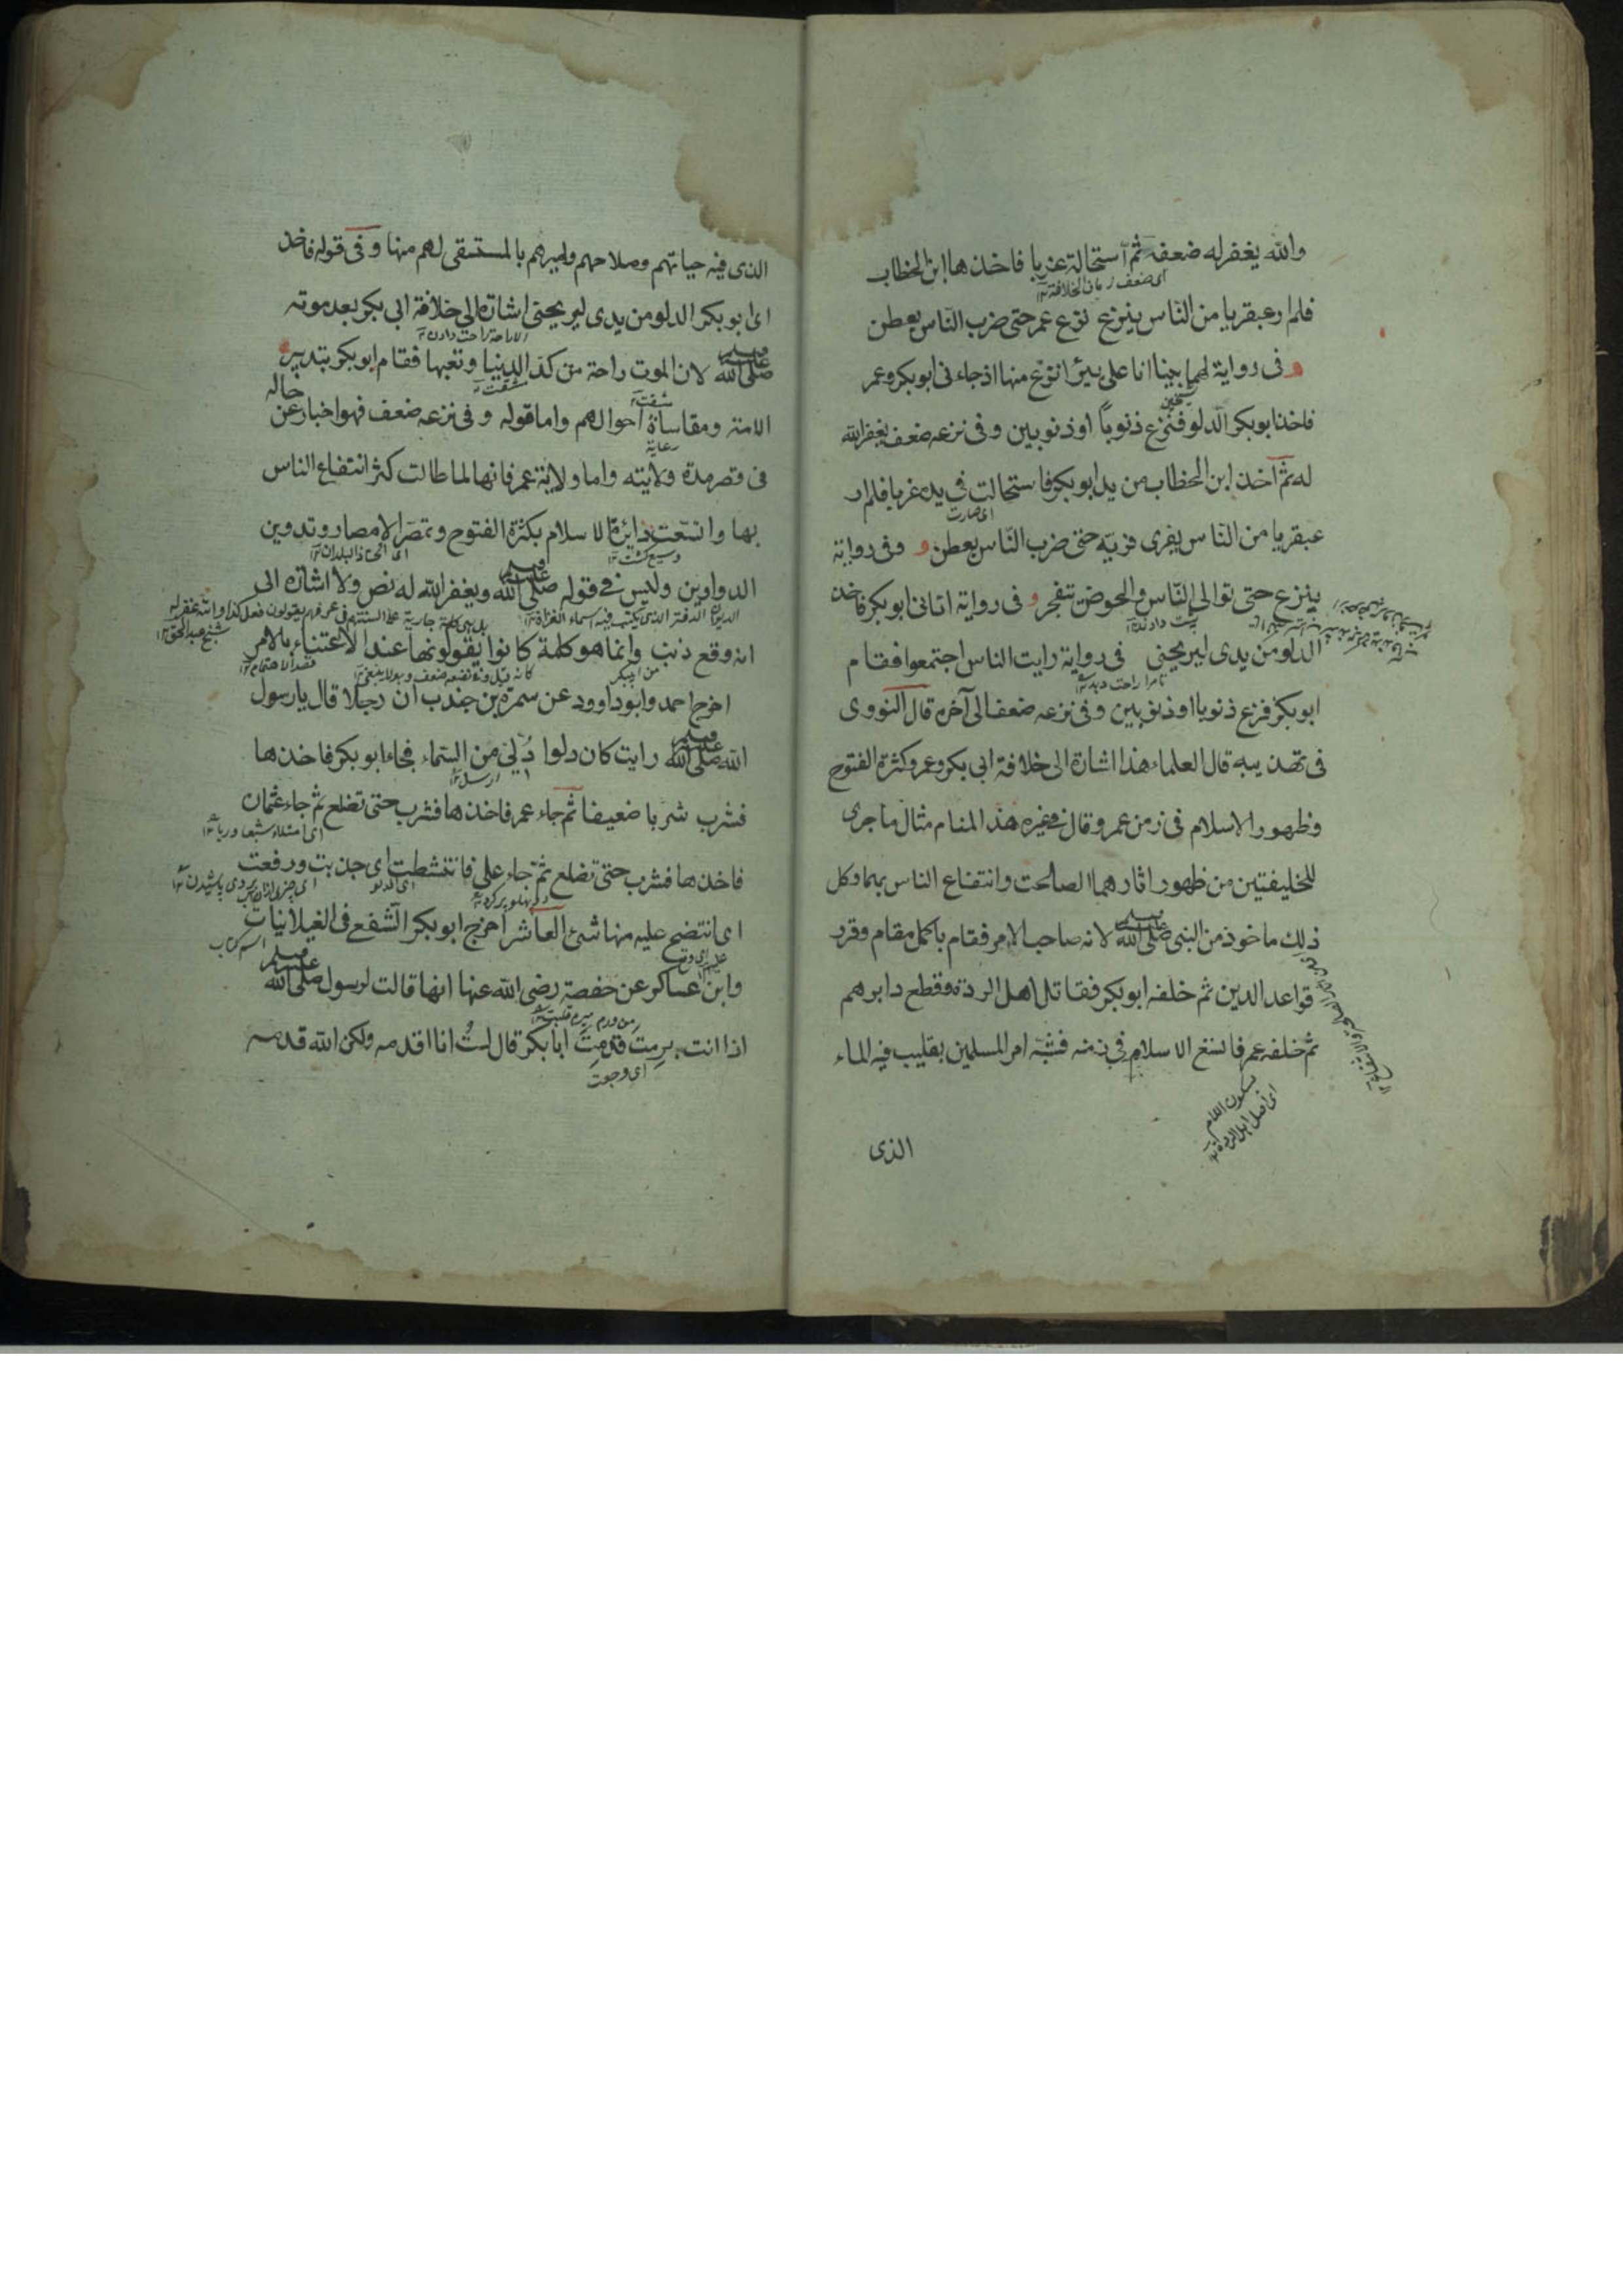 والله يغفر له ضعفه ثم استحالة غربا فاخذها ابن الخطاب
اى ضعف زمان الخلافة ١٢
فلم ار عبقريا من الناس ينزع نزع عمر حتى ضرب الناس بعطن
و فى رواية لهما بينا انا على بيئر انزع منها اذ جاءنى ابوبكر وعمر
فاخذ ابوبكر الدلو فنزع ذنوباً او ذنوبين وفى نزعه ضعف يغفر الله
له ثم اخذ ابن الخطاب من يد ابوبكر فاستحالت فى يده غربا فلم ار
اى صارت
عبقريا من الناس يفرى فريّه حتى ضرب الناس بعطن و وفى رواية
ينزع حتى توالى الناس والحوض تتفجر و فى رواية اتانى ابوبكر فاخذ
الدلو من يدى ليريحنى فى رواية رايت الناس اجتمعوا فقام
تا مرا راحت دهد ١٢
ابوبكر فنزع ذنوبا او ذنوبين وفى نزعه ضعف الى آخره قال النووى
فى تهذيبه قال العلماء هذا اشارة الى خلافة ابى بكر وعمر وكثرة الفتوح
وظهور الاسلام فى زمن عمر وقال فى غيره هذ المنام مثال ما جرى
للخليفتين من ظهور اثارهما الصالحت وانتفاع الناس بهما وكل
ذلك ماخوذ من النبى صلى الله عليه وسلم لانه صاحب الامر فقام باكمل مقام وقرر
قواعد الدين ثم خلفه ابوبكر فقاتل اهل الردة وقطع دابرهم
ثم خلفه عمر فاتسع الاسلام فى زمنه فشبه امر المسلمين بقليب فيه الماء
بسكون اللام
اى اصل اهل الردة ١٢
الذى
الذى فيه حياتهم وصلاحهم واميرهم بالمستقى لهم منها و فى قوله فاخذ
اى ابوبكر الدلو من يدى ليريحنى اشارة الى خلافة ابى بكر بعد موته
الاراحة راحت دادن ١٢
صلى الله عليه وسلم لان الموت راحة من كد الدنيا وتعبها فقام ابوبكر بتدبير
مشقت
الامة ومقاساة احوالهم واما قوله و فى نزعه ضعف فهو اخبار عن حاله
رعاية
فى قصر مدة ولايته واما ولاية عمر فانها لما طالت كثر انتفاع الناس
بها واتسعت دايرة الاسلام بكثرة الفتوح وتمصر الامصار وتدوين
وسيع گشت ١٢
اى اتخاذ البلدان ١٢
الدواوين وليس فى قوله صلى الله عليه وسلم ويغفر الله له نص ولا اشارة الى
الديوان الدفتر الذى يكتب فيه اسماء الغزاة ١٢
بل هى كلمة جارية على السنتهم فى عرفهم يقولون فعل كذا والله يغفر له
شيخ عبد الحق ١٢
انه وقع ذنب وانما هو كلمة كانوا يقولونها عند الاعتناء بالامر
من ابى بكر
قصد الاهتمام ١٢
اخرج احمد وابوداوود عن سمرة بن جندب ان رجلا قال يارسول
الله صلى الله عليه وسلم رايت كان دلوا دُلّى من السماء فجاء ابوبكر فاخذها
ارسل ١٢
فشرب شربا ضعيفا ثم جاء عمر فاخذها فشرب حتى تضلع ثم جاء عثمان
اى امتلاء شبعا وريا ١٢
فاخذها فشرب حتى تضلع ثم جاء على فانتشطت اى جذبت ورفعت
اى الدلو
اى انتضح عليه منها شئ العاشر اخرج ابوبكر الشفع فى الغيلانيات
اسم كتاب
وابن عساكر عن حفصة رضى الله عنها انها قالت لرسول صلى الله عليه وسلم
اذا انت برمت قدمت ابا بكر قال لست انا اقدمه ولكن الله قدمه
اى وجعت